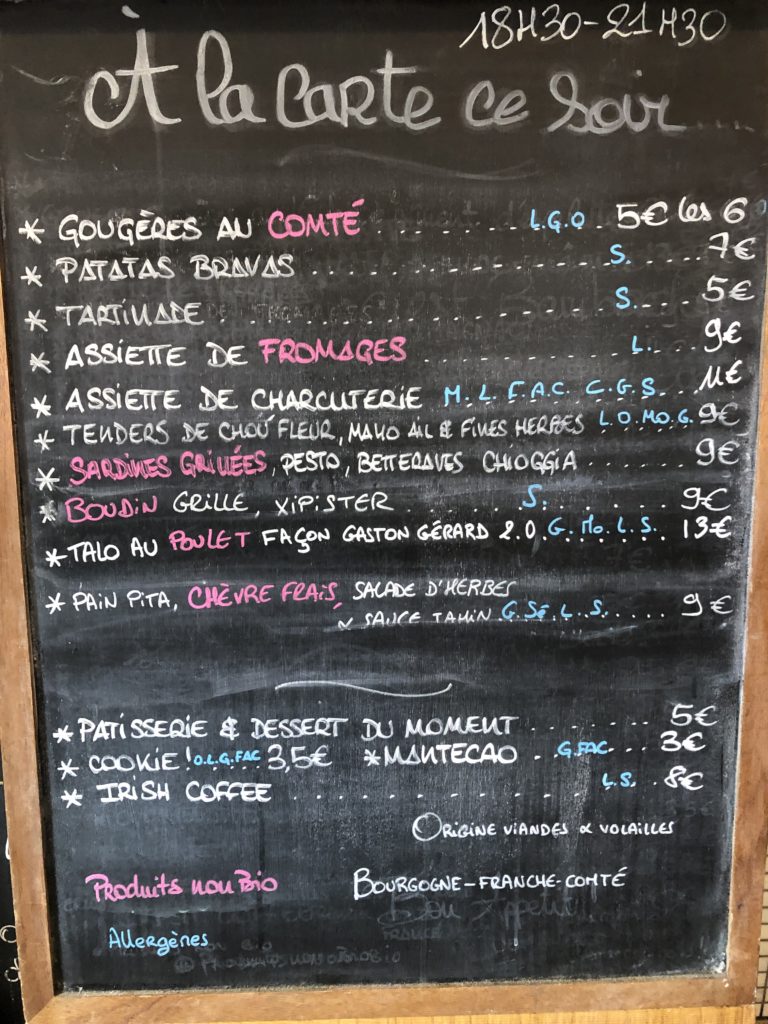 18H30-21H30
À la carte ce soir
* GOUGÈRES AU COMTÉ L.G.O.. 5€ les 6
* PATATAS BRAVAS .......... S. ..... 7€
* TARTINADE .......... S.... 5€
* ASSIETTE DE FROMAGES ....... L. ... 9€
* ASSIETTE DE CHARCUTERIE M.L.F.A.C. C.G.S. .. 11€
* TENDERS DE CHOU FLEUR, MAYO AIL & FINES HERBES L.O.MO.G. 9€
* SARDINES GRILLÉES, PESTO, BETTERAVES CHIOGGIA ....... 9€
* BOUDIN GRILLE, XIPISTER ....... S. ...... 9€
* TALO AU POULET FAÇON GASTON GÉRARD 2.0. G.Mo.L.S. 13€
* PAIN PITA, CHÈVRE FRAIS, SALADE D'HERBES
SAUCE TAHIN. G.Sé.L.S. .... 9€
* PATISSERIE & DESSERT DU MOMENT ....... 5€
* COOKIE! O.L.G.FAC 3,5€ *MANTECAO . G.FAC ... 3€
* IRISH COFFEE .......... L.S. . 8€
ORIGINE VIANDES & VOLAILLES
Produits non Bio BOURGOGNE-FRANCHE-COMTÉ
Bon Appétit
FRANCE
Allergènes